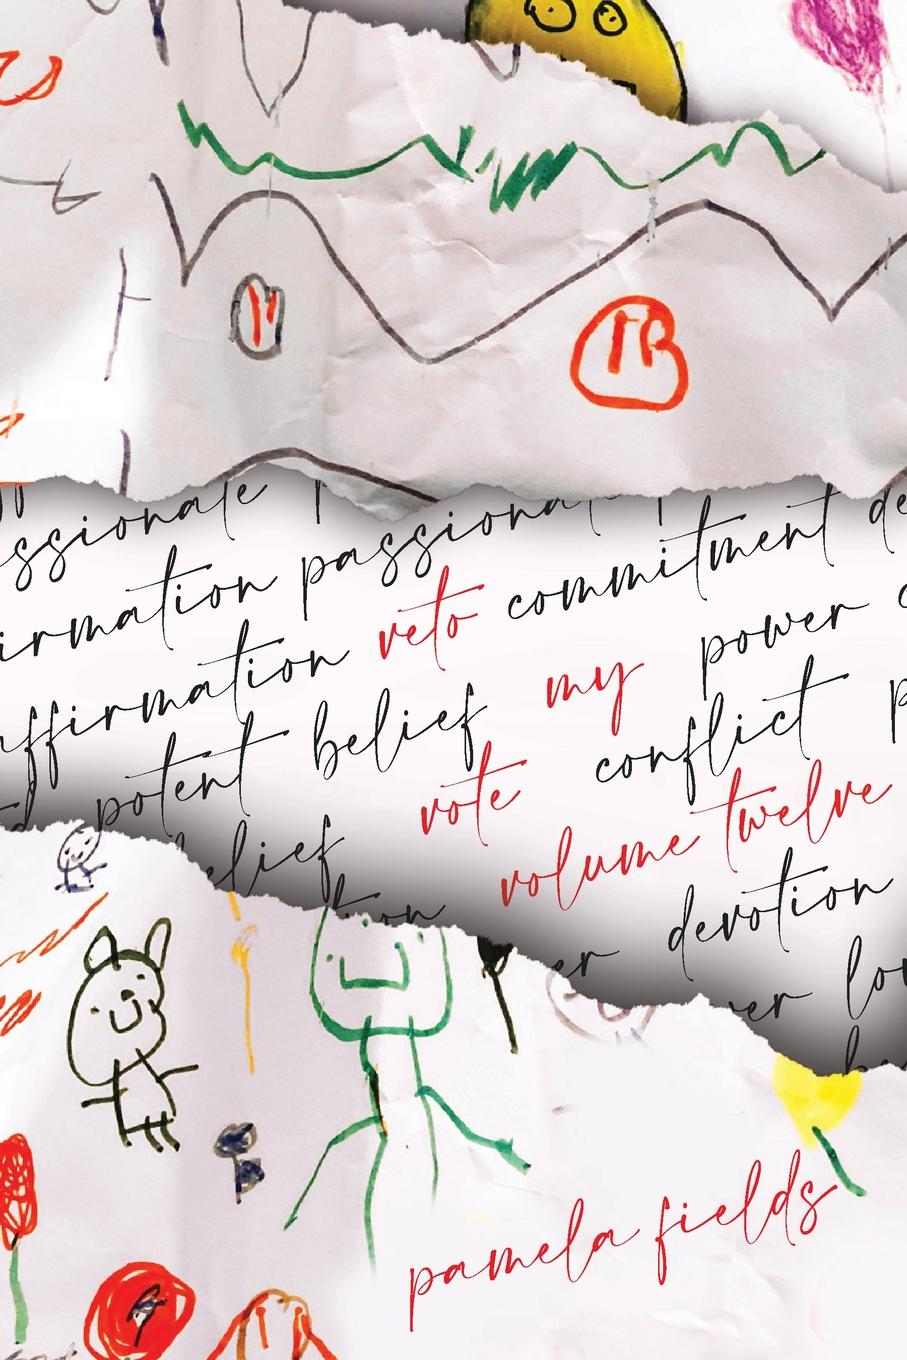 ssionate
irmation passionat
affirmation veto commitment de
potent belief my power c
vote conflict p
belief volume twelve
er devotion
ver lov
pamela fields